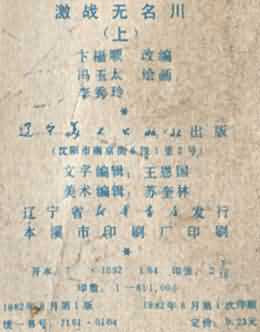 激战无名川
（上）
卞福顺 改编
冯玉太 绘画
李秀玲
辽宁美术出版社出版
（沈阳市南京街6段1里2号）
文字编辑：王恩国
美术编辑：苏奎林
辽宁省新华书店发行
本溪市印刷厂印刷
开本：787×1092 1/64 印张：2
印数：1—811,000
1982年8月第1版 1982年8月第1次印刷
统一书号：7161·0104 定价：0.23元